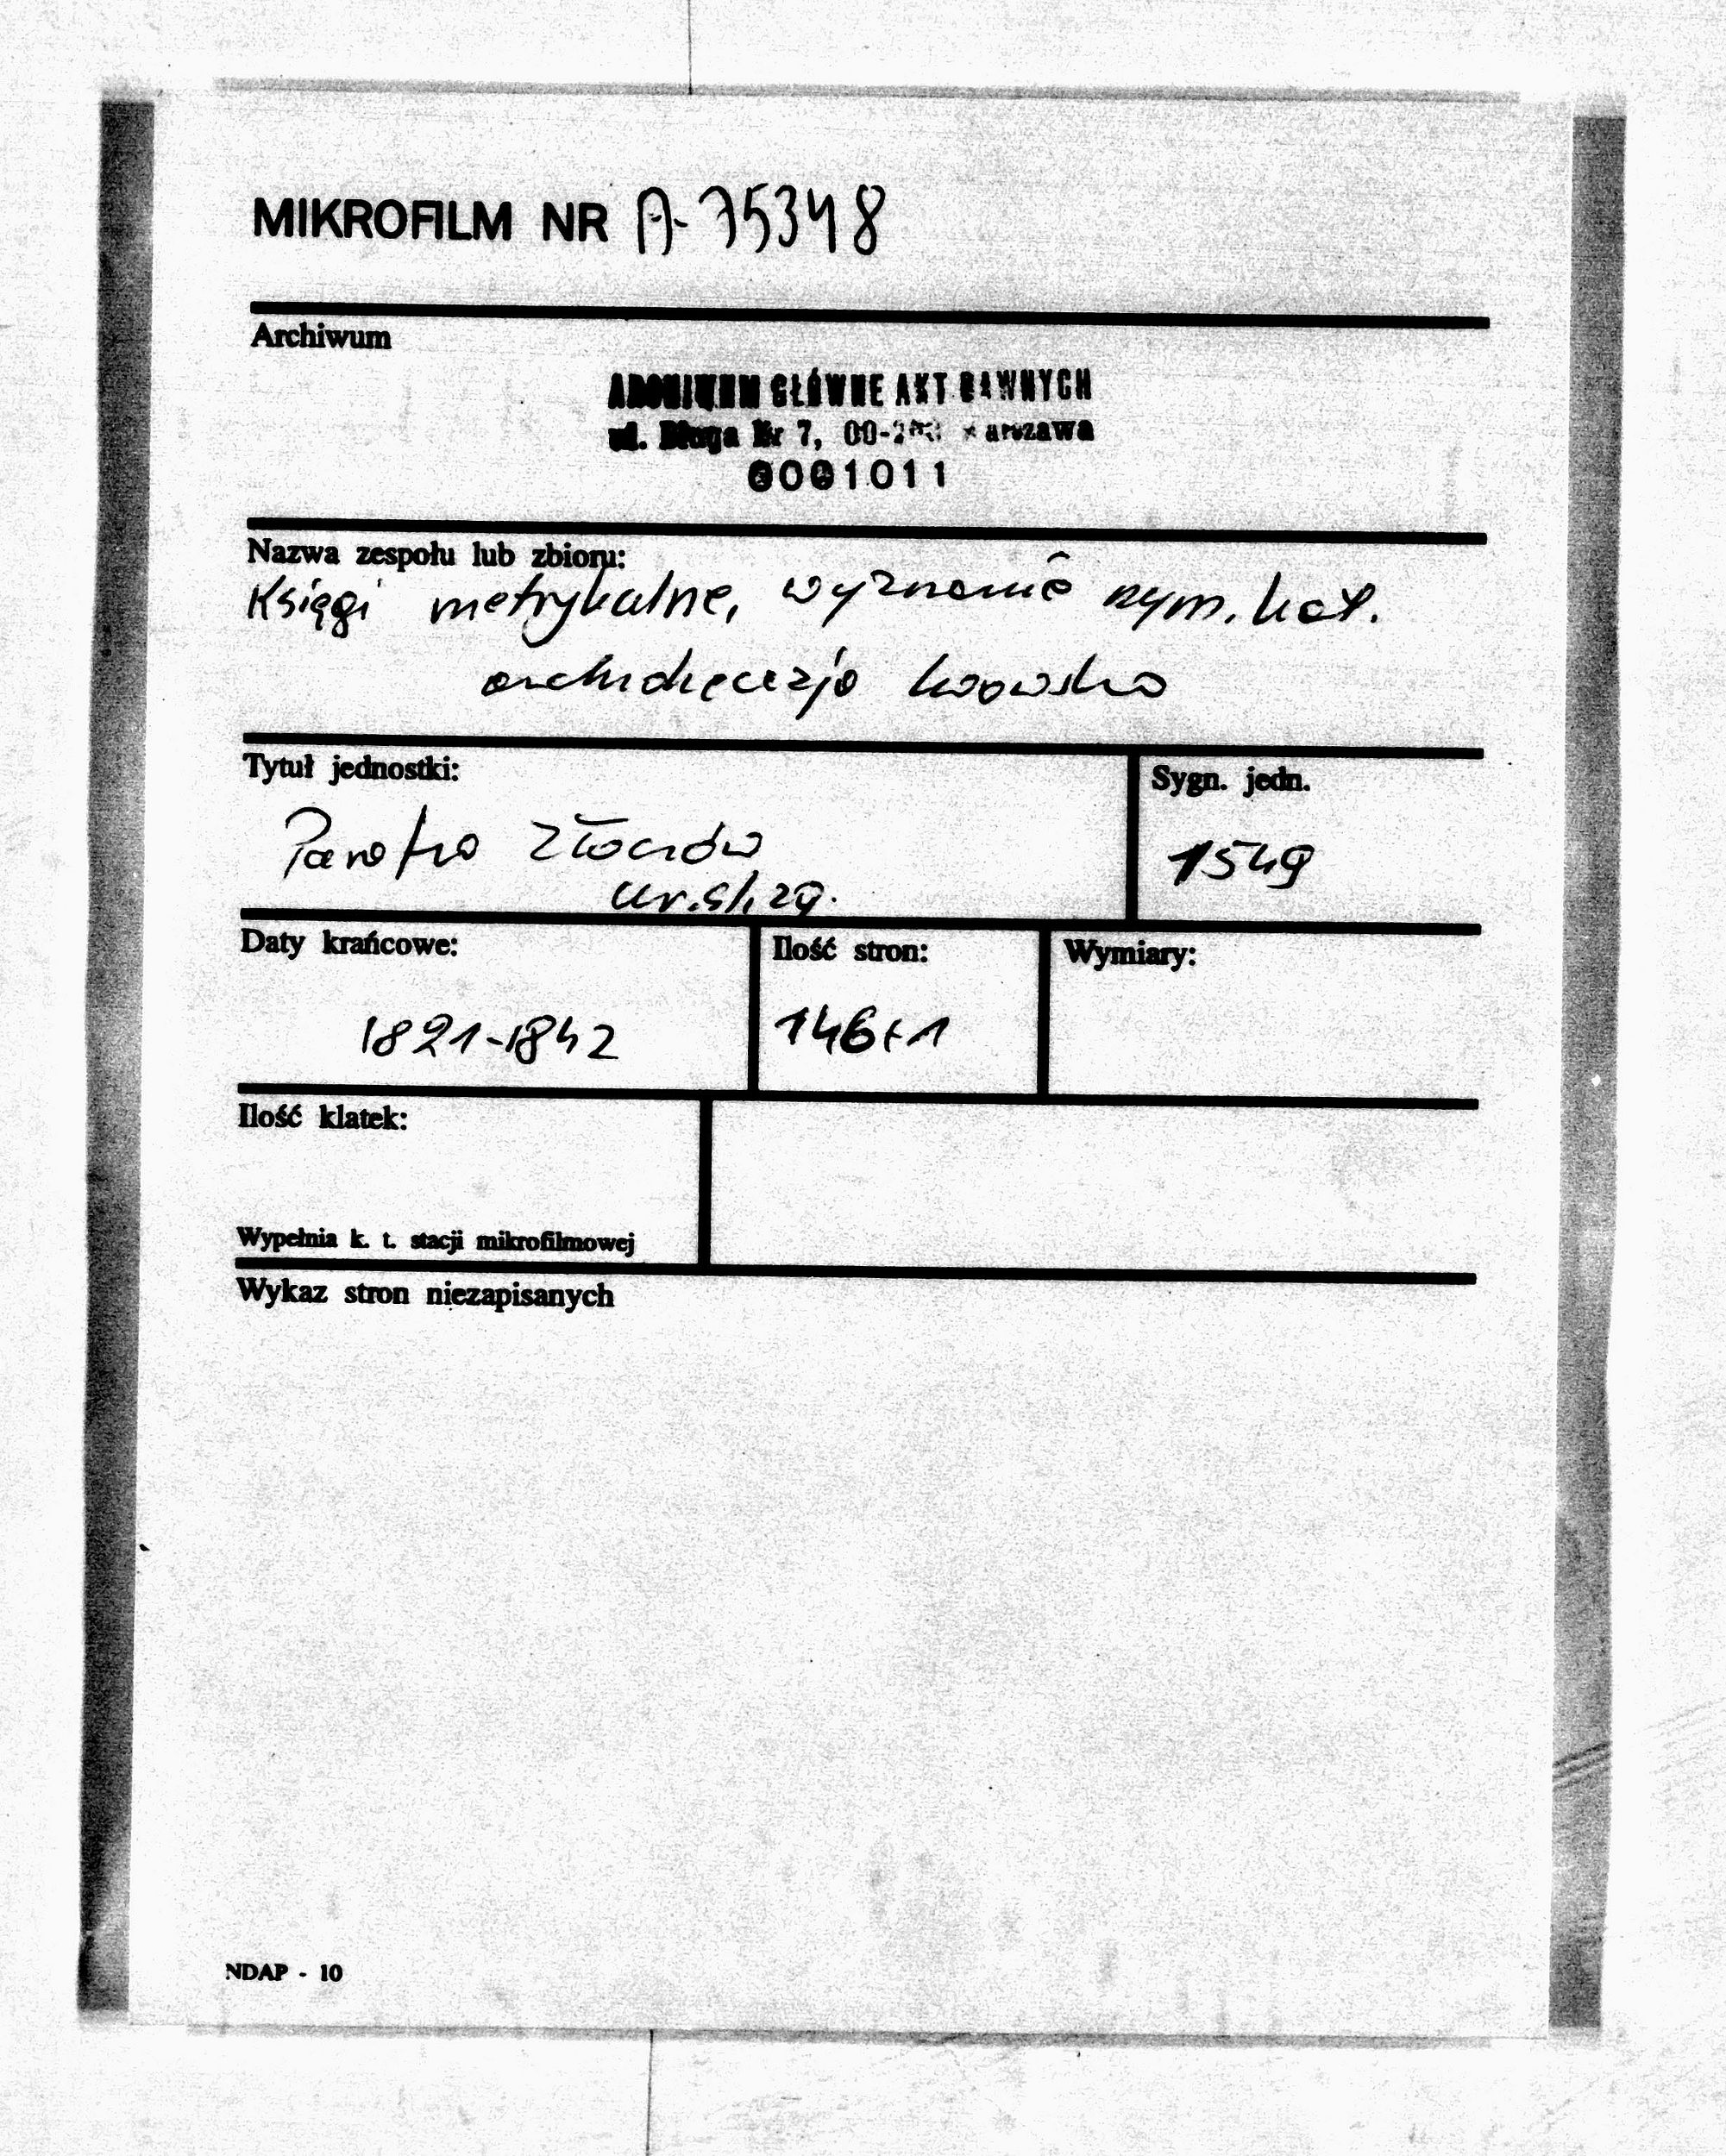 MIKROFILM NR A-75348
Archiwum
ARCHIWUM GŁÓWNE AKT DAWNYCH
ul. Długa Nr 7, 00-263 Warszawa
0001011
Nazwa zespołu lub zbioru:
Księgi metrykalne, wyznanie rzym. kat.
archidiecezja lwowska
Tytuł jednostki:
Sygn. jedn.
Parafia Złoczów
1549
ur. śl. zg.
Daty krańcowe:
Ilość stron:
Wymiary:
1821-1842
146+1
Ilość klatek:
Wypełnia k. t. stacji mikrofilmowej
Wykaz stron niezapisanych
NDAP - 10